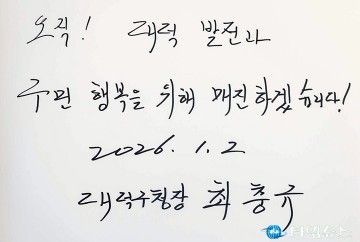 오직! 대덕 발전과
구민 행복을 위해 매진하겠습니다!
2026. 1. 2
대덕구청장 최충규
타임뉴스